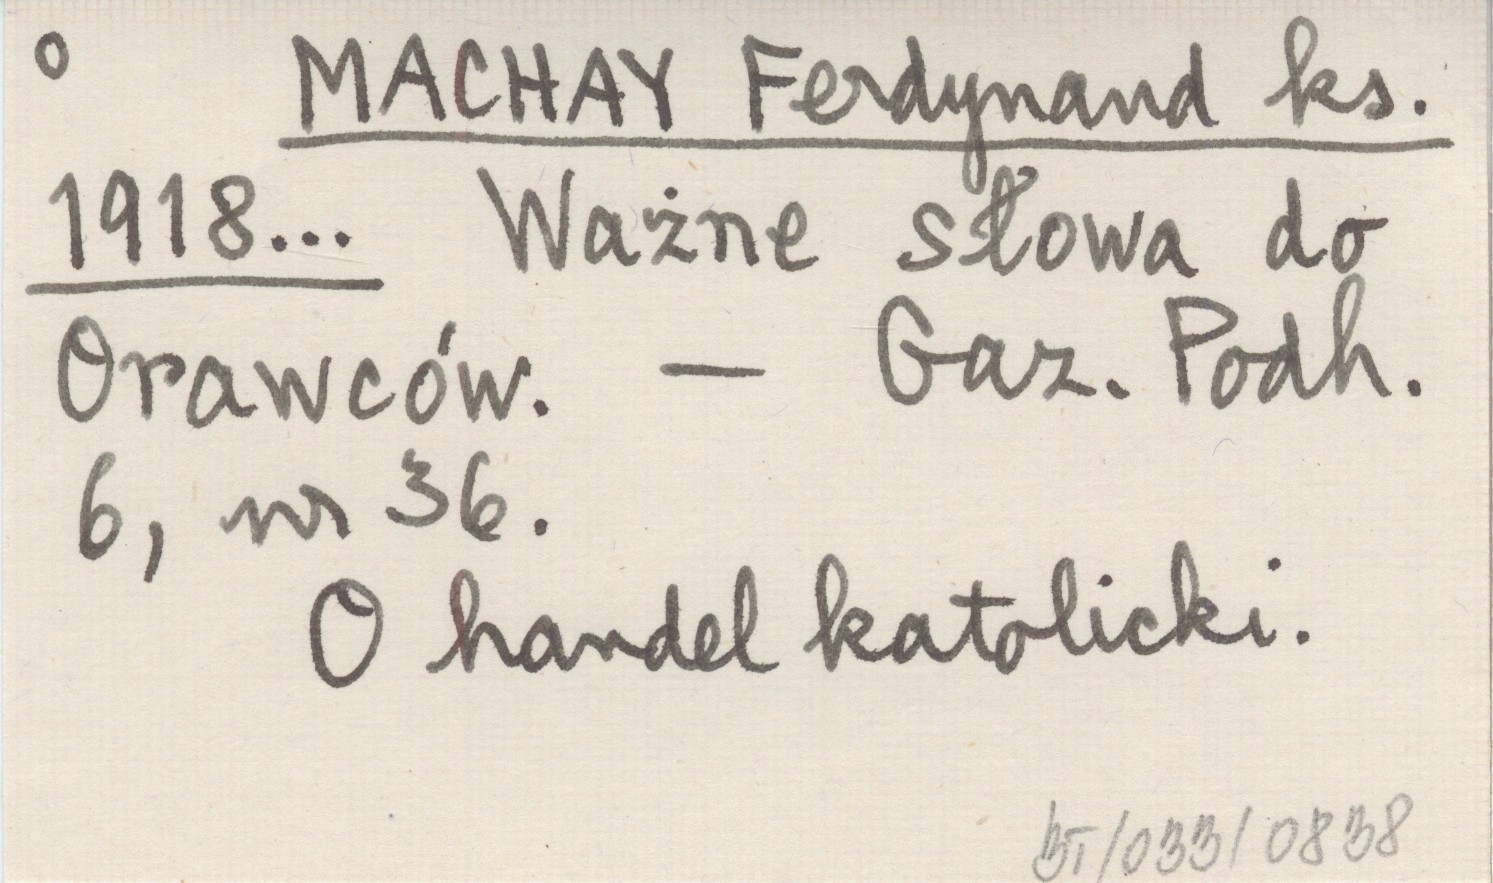 o MACHAY Ferdynand ks.
1918... Ważne słowa do
Orawców. — Gaz. Podh.
6, nr 36.
O handel katolicki.
BT/033/0838